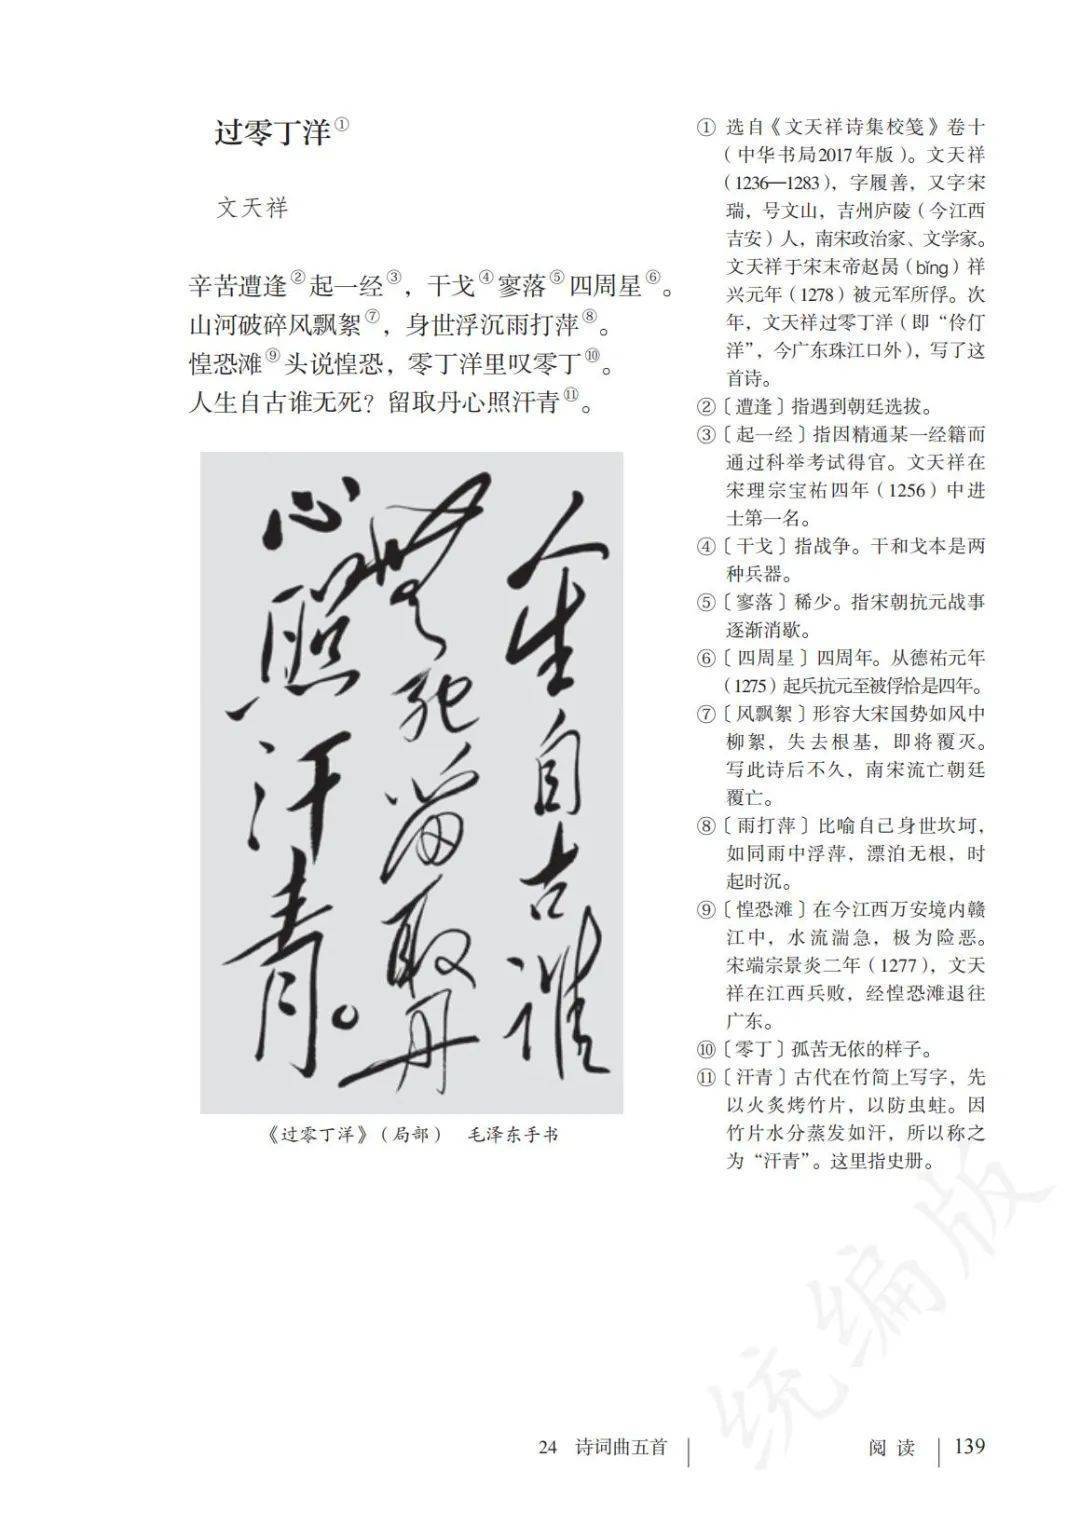 过零丁洋①
文天祥
辛苦遭逢②起一经③，干戈④寥落⑤四周星⑥。
山河破碎风飘絮⑦，身世浮沉雨打萍⑧。
惶恐滩⑨头说惶恐，零丁洋里叹零丁⑩。
人生自古谁无死？留取丹心照汗青⑪。
人生自古谁
无死留取丹
心照汗青。
《过零丁洋》（局部）　毛泽东手书
① 选自《文天祥诗集校笺》卷十
（中华书局2017年版）。文天祥
（1236—1283），字履善，又字宋
瑞，号文山，吉州庐陵（今江西
吉安）人，南宋政治家、文学家。
文天祥于宋末帝赵昺（bǐng）祥
兴元年（1278）被元军所俘。次
年，文天祥过零丁洋（即“伶仃
洋”，今广东珠江口外），写了这
首诗。
②〔遭逢〕指遇到朝廷选拔。
③〔起一经〕指因精通某一经籍而
通过科举考试得官。文天祥在
宋理宗宝祐四年（1256）中进
士第一名。
④〔干戈〕指战争。干和戈本是两
种兵器。
⑤〔寥落〕稀少。指宋朝抗元战事
逐渐消歇。
⑥〔四周星〕四周年。从德祐元年
（1275）起兵抗元至被俘恰是四年。
⑦〔风飘絮〕形容大宋国势如风中
柳絮，失去根基，即将覆灭。
写此诗后不久，南宋流亡朝廷
覆亡。
⑧〔雨打萍〕比喻自己身世坎坷，
如同雨中浮萍，漂泊无根，时
起时沉。
⑨〔惶恐滩〕在今江西万安境内赣
江中，水流湍急，极为险恶。
宋端宗景炎二年（1277），文天
祥在江西兵败，经惶恐滩退往
广东。
⑩〔零丁〕孤苦无依的样子。
⑪〔汗青〕古代在竹简上写字，先
以火炙烤竹片，以防虫蛀。因
竹片水分蒸发如汗，所以称之
为“汗青”。这里指史册。
统编版
24　诗词曲五首
阅读　139